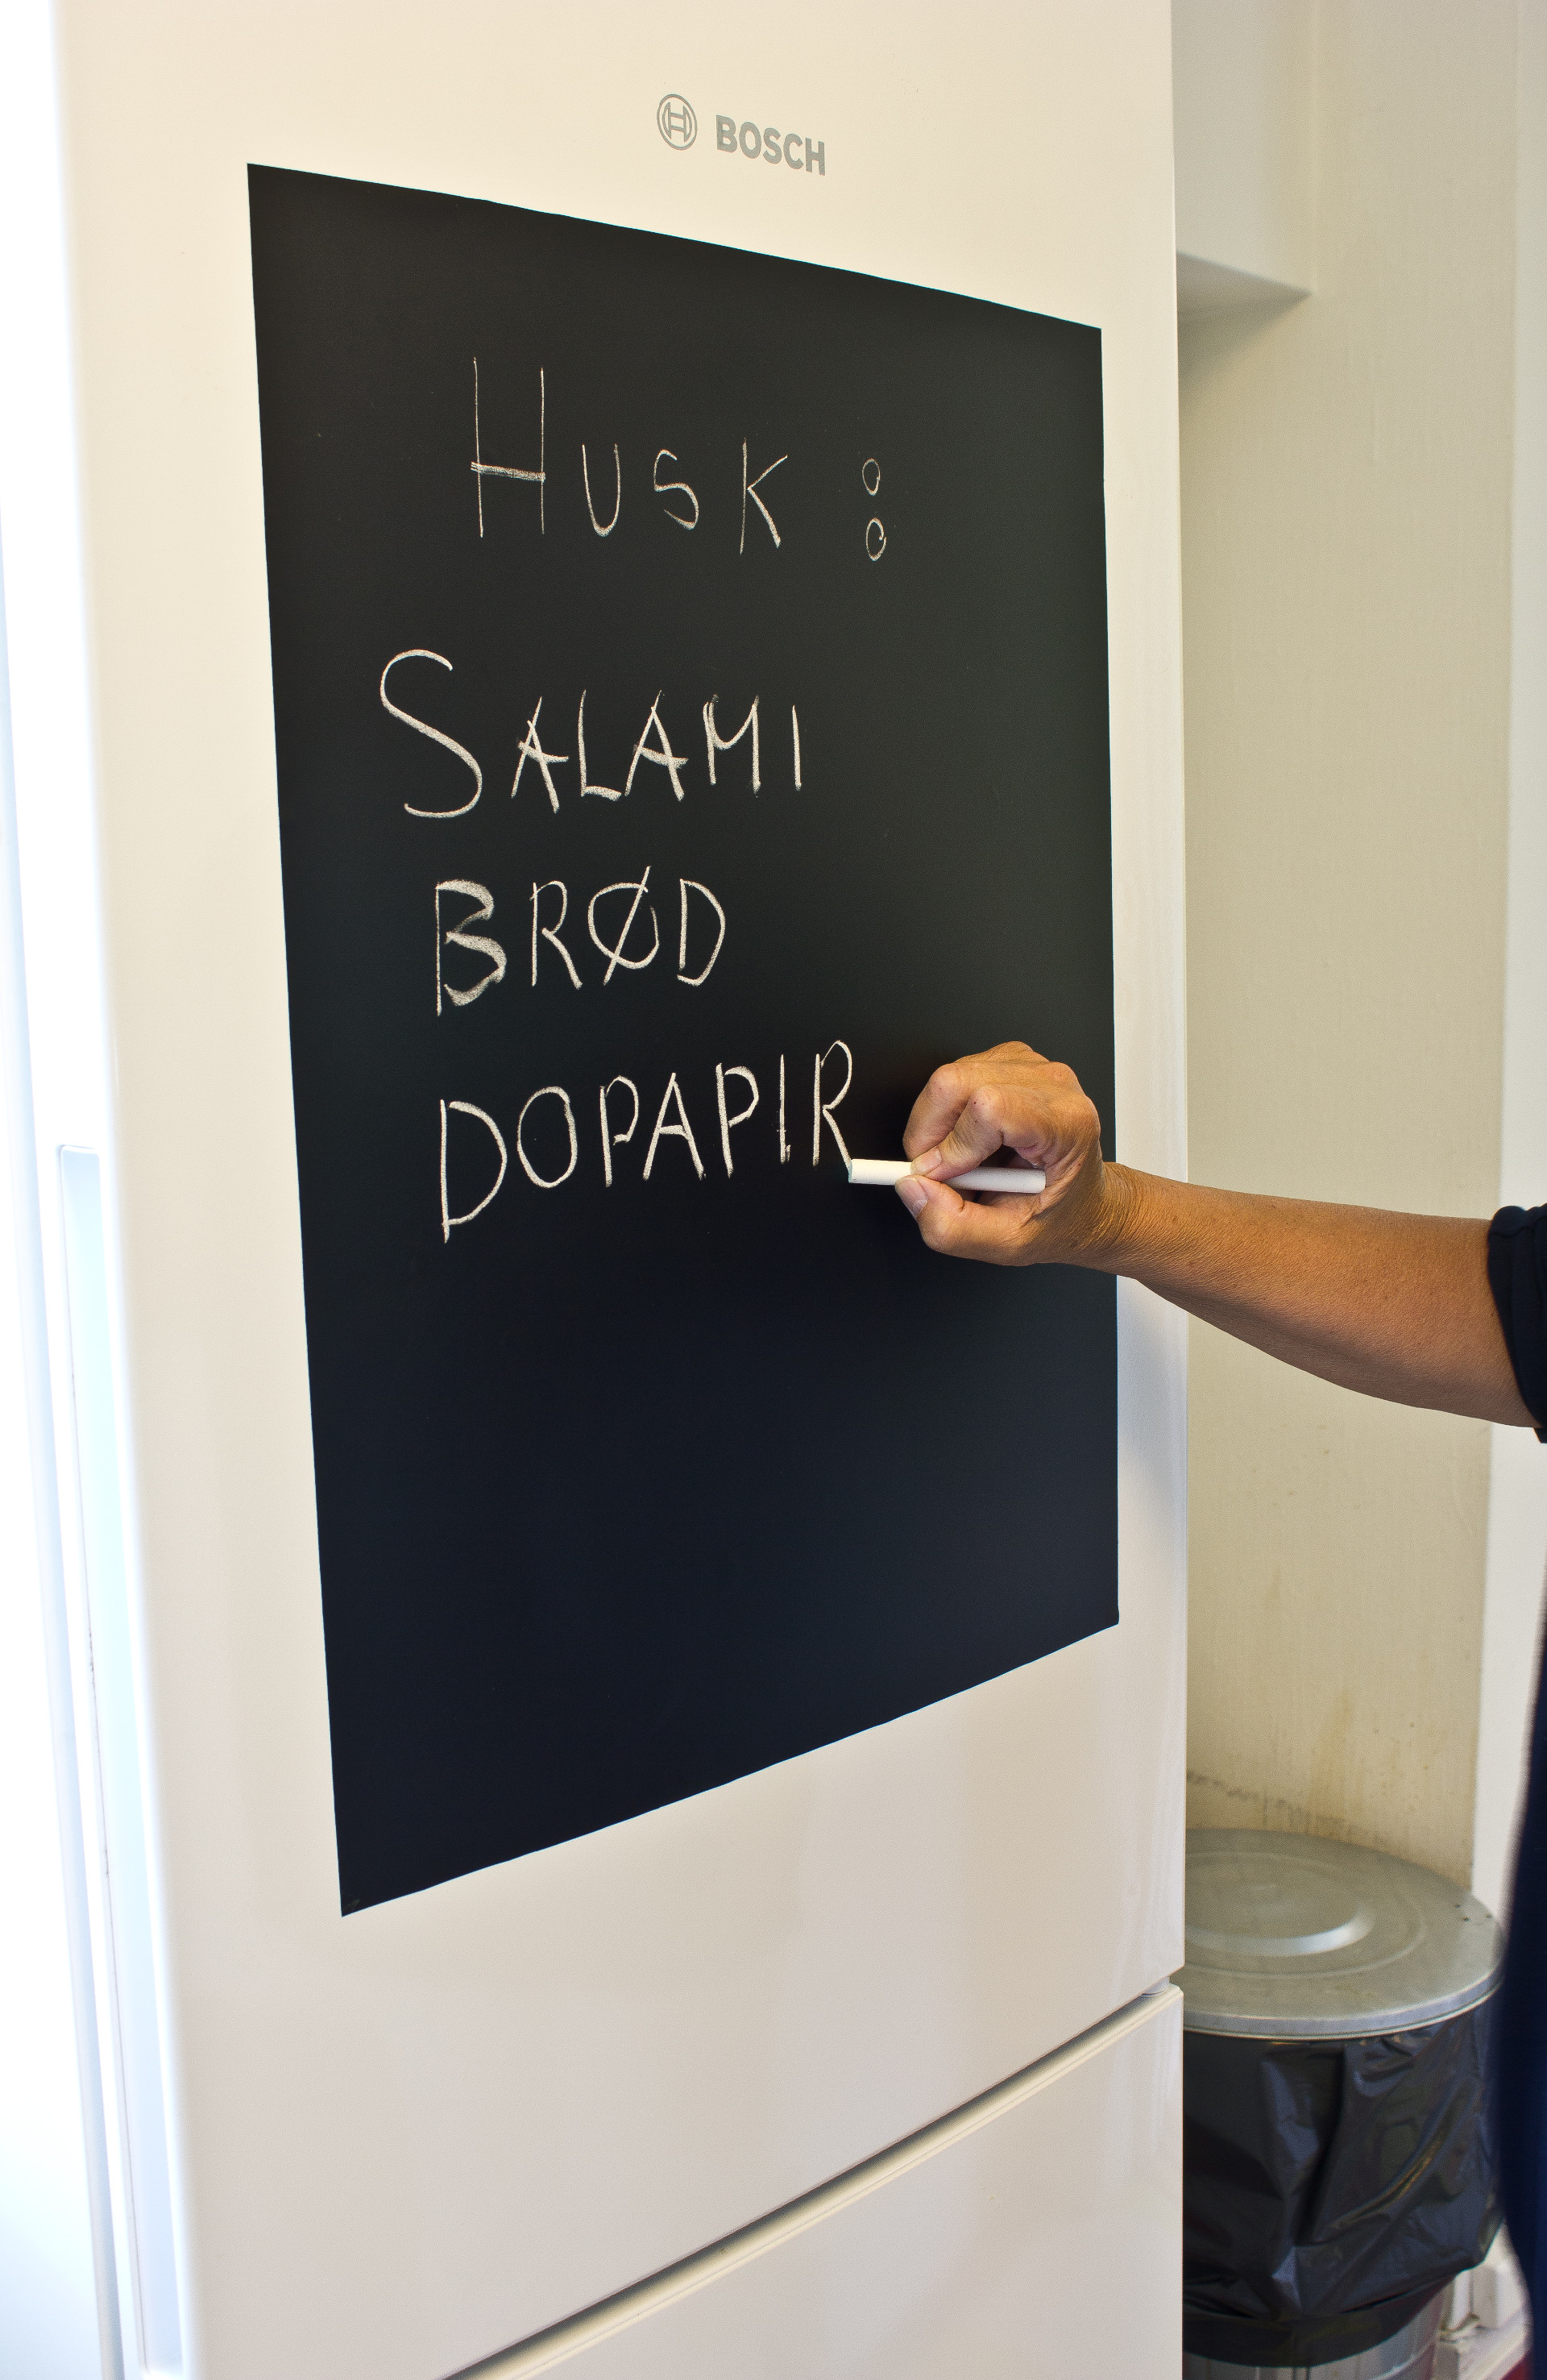 BOSCH
HUSK:
SALAMI
BRØD
DOPAPIR